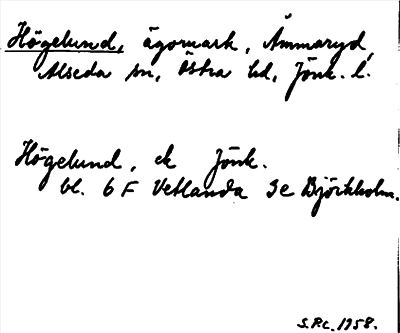 Högelund, ägomark, Ämmaryd,
Alseda sn, Östra hd, Jönk. l.
Högelund, ek Jönk.
bl. 6 F Vetlanda 3e Björkholm.
S.Rc. 1958.